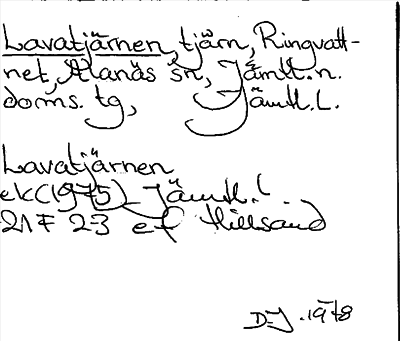 Lavatjärnen, tjärn, Ringvatt-
net, Alanäs sn, Jämtl. n.
doms. tg, Jämtl. L.
Lavatjärnen
ek(1975) Jämtl. L.
21F 23 ef Hillsand
D-J. 1978